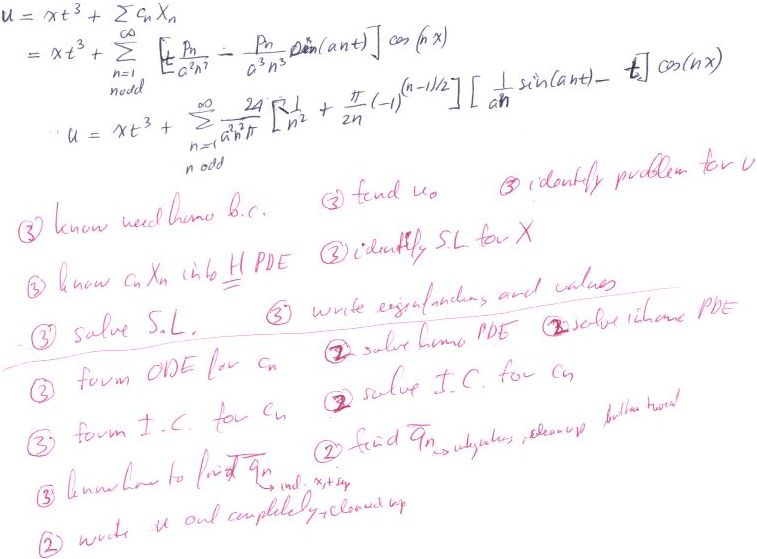 u = xt³ + Σ cₙ Xₙ
= xt³ + Σ_{n=1, n odd}^{∞} [t pₙ/(a²n²) − pₙ/(a³n³) sin(ant)] cos(nx)
u = xt³ + Σ_{n=1, n odd}^{∞} 24/(a²n²π) [1/n² + π/(2n) (-1)^{(n-1)/2}] [1/(an) sin(ant) − t] cos(nx)
③ know need homo b.c. ③ find u₀ ③ identify problem for v
③ know cₙ Xₙ into H PDE ③ identify S.L for X
③ solve S.L. ③ write eigenfunctions and values
③ form ODE for cₙ ② solve homo PDE ② solve inhomo PDE
③ form I.C. for cₙ ② solve I.C. for cₙ
③ know how to find q̄ₙ ② find q̄ₙ → integrations, cleanup
→ incl. x, t sep
② write u out completely, cleaned up